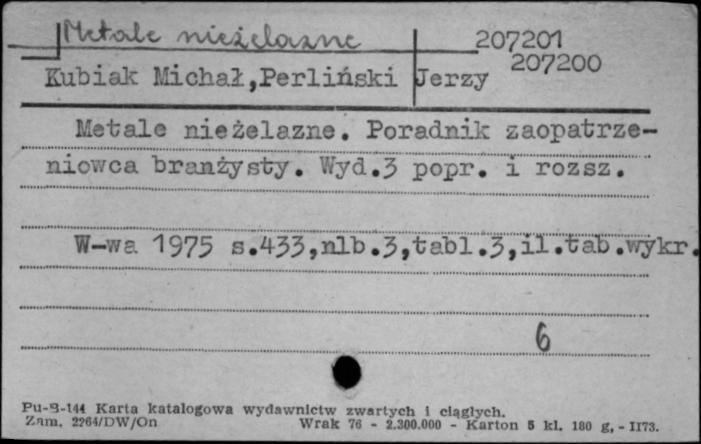 Metale nieżelazne 207201
207200
Kubiak Michał,Perliński Jerzy
Metale nieżelazne. Poradnik zaopatrze-
niowca branżysty. Wyd.3 popr. i rozsz.
W-wa 1975 s.433,nlb.3,tabl.3,il.tab.wykr.
6
Pu-B-144 Karta katalogowa wydawnictw zwartych i ciągłych.
Zam. 2264/DW/On Wrak 76 - 2.300.000 - Karton 5 kl. 180 g, - II73.